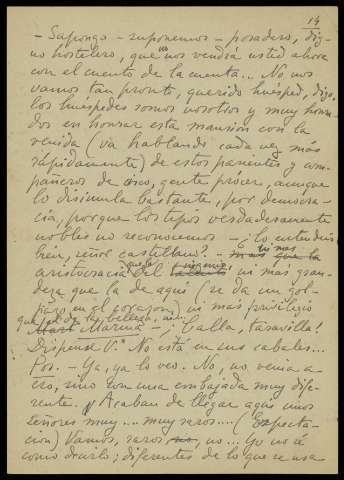 14
- Supongo - suponemos - posadero, dig-
no hostelero, que no nos vendrá usted ahora
con el cuento de la cuenta... No nos
vamos tan pronto, querido huésped, digo,
los huéspedes somos nosotros y muy honra-
dos en honrar esta mansión con la
venida (va hablando cada vez más
rápidamente) de estos parientes y com-
pañeros de circo, gente prócer, aunque
lo disimula bastante, por democra-
cia, porque los tipos verdaderamente
nobles no reconocemos - ¿lo entendéis
bien, señor castellano? - ni más
aristocracia que la del ingenio ni más gran-
deza que la de aquí (se da un gol-
pazo en el corazón) ni más privilegio
que el de la belleza, ni...
Marina - ¡Calla, taravilla!
Dispense Vd. No está en sus cabales...
Pos. - Ya, ya lo veo. No, no venía a
eso, sino con una embajada muy dife-
rente. Acaban de llegar aquí unos
señores muy... muy raros... (Expecta-
ción) Vamos, raros no, no... Yo no sé
como decirlo; diferentes de lo que se usa